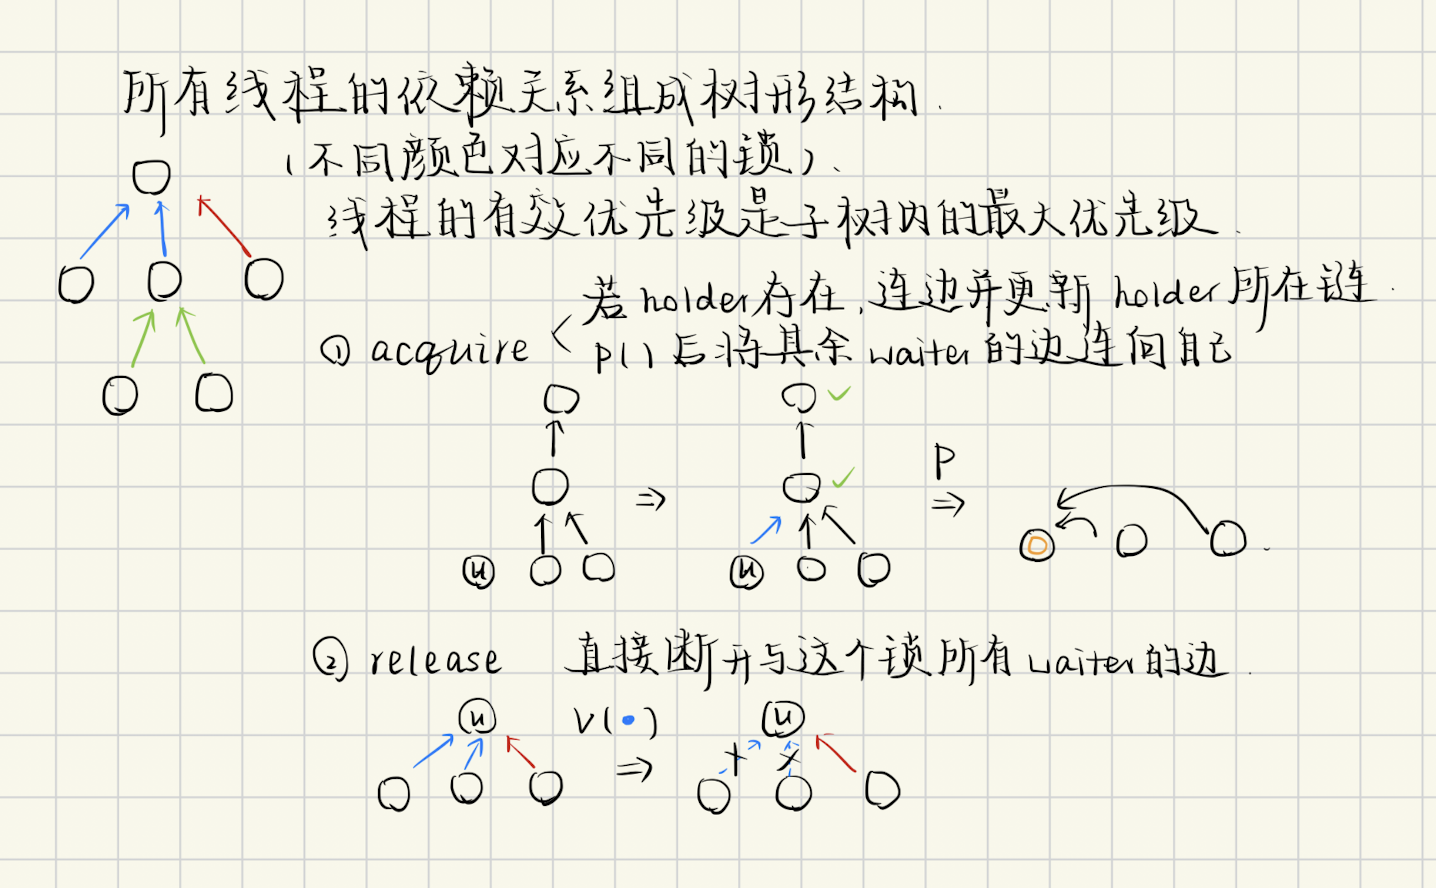 所有线程的依赖关系组成树形结构.
(不同颜色对应不同的锁).
线程的有效优先级是子树内的最大优先级.
① acquire < 若holder存在,连边并更新holder所在链.
P()后将其余waiter的边连向自己
P
u
u
② release 直接断开与这个锁所有waiter的边.
u
V(•)
u